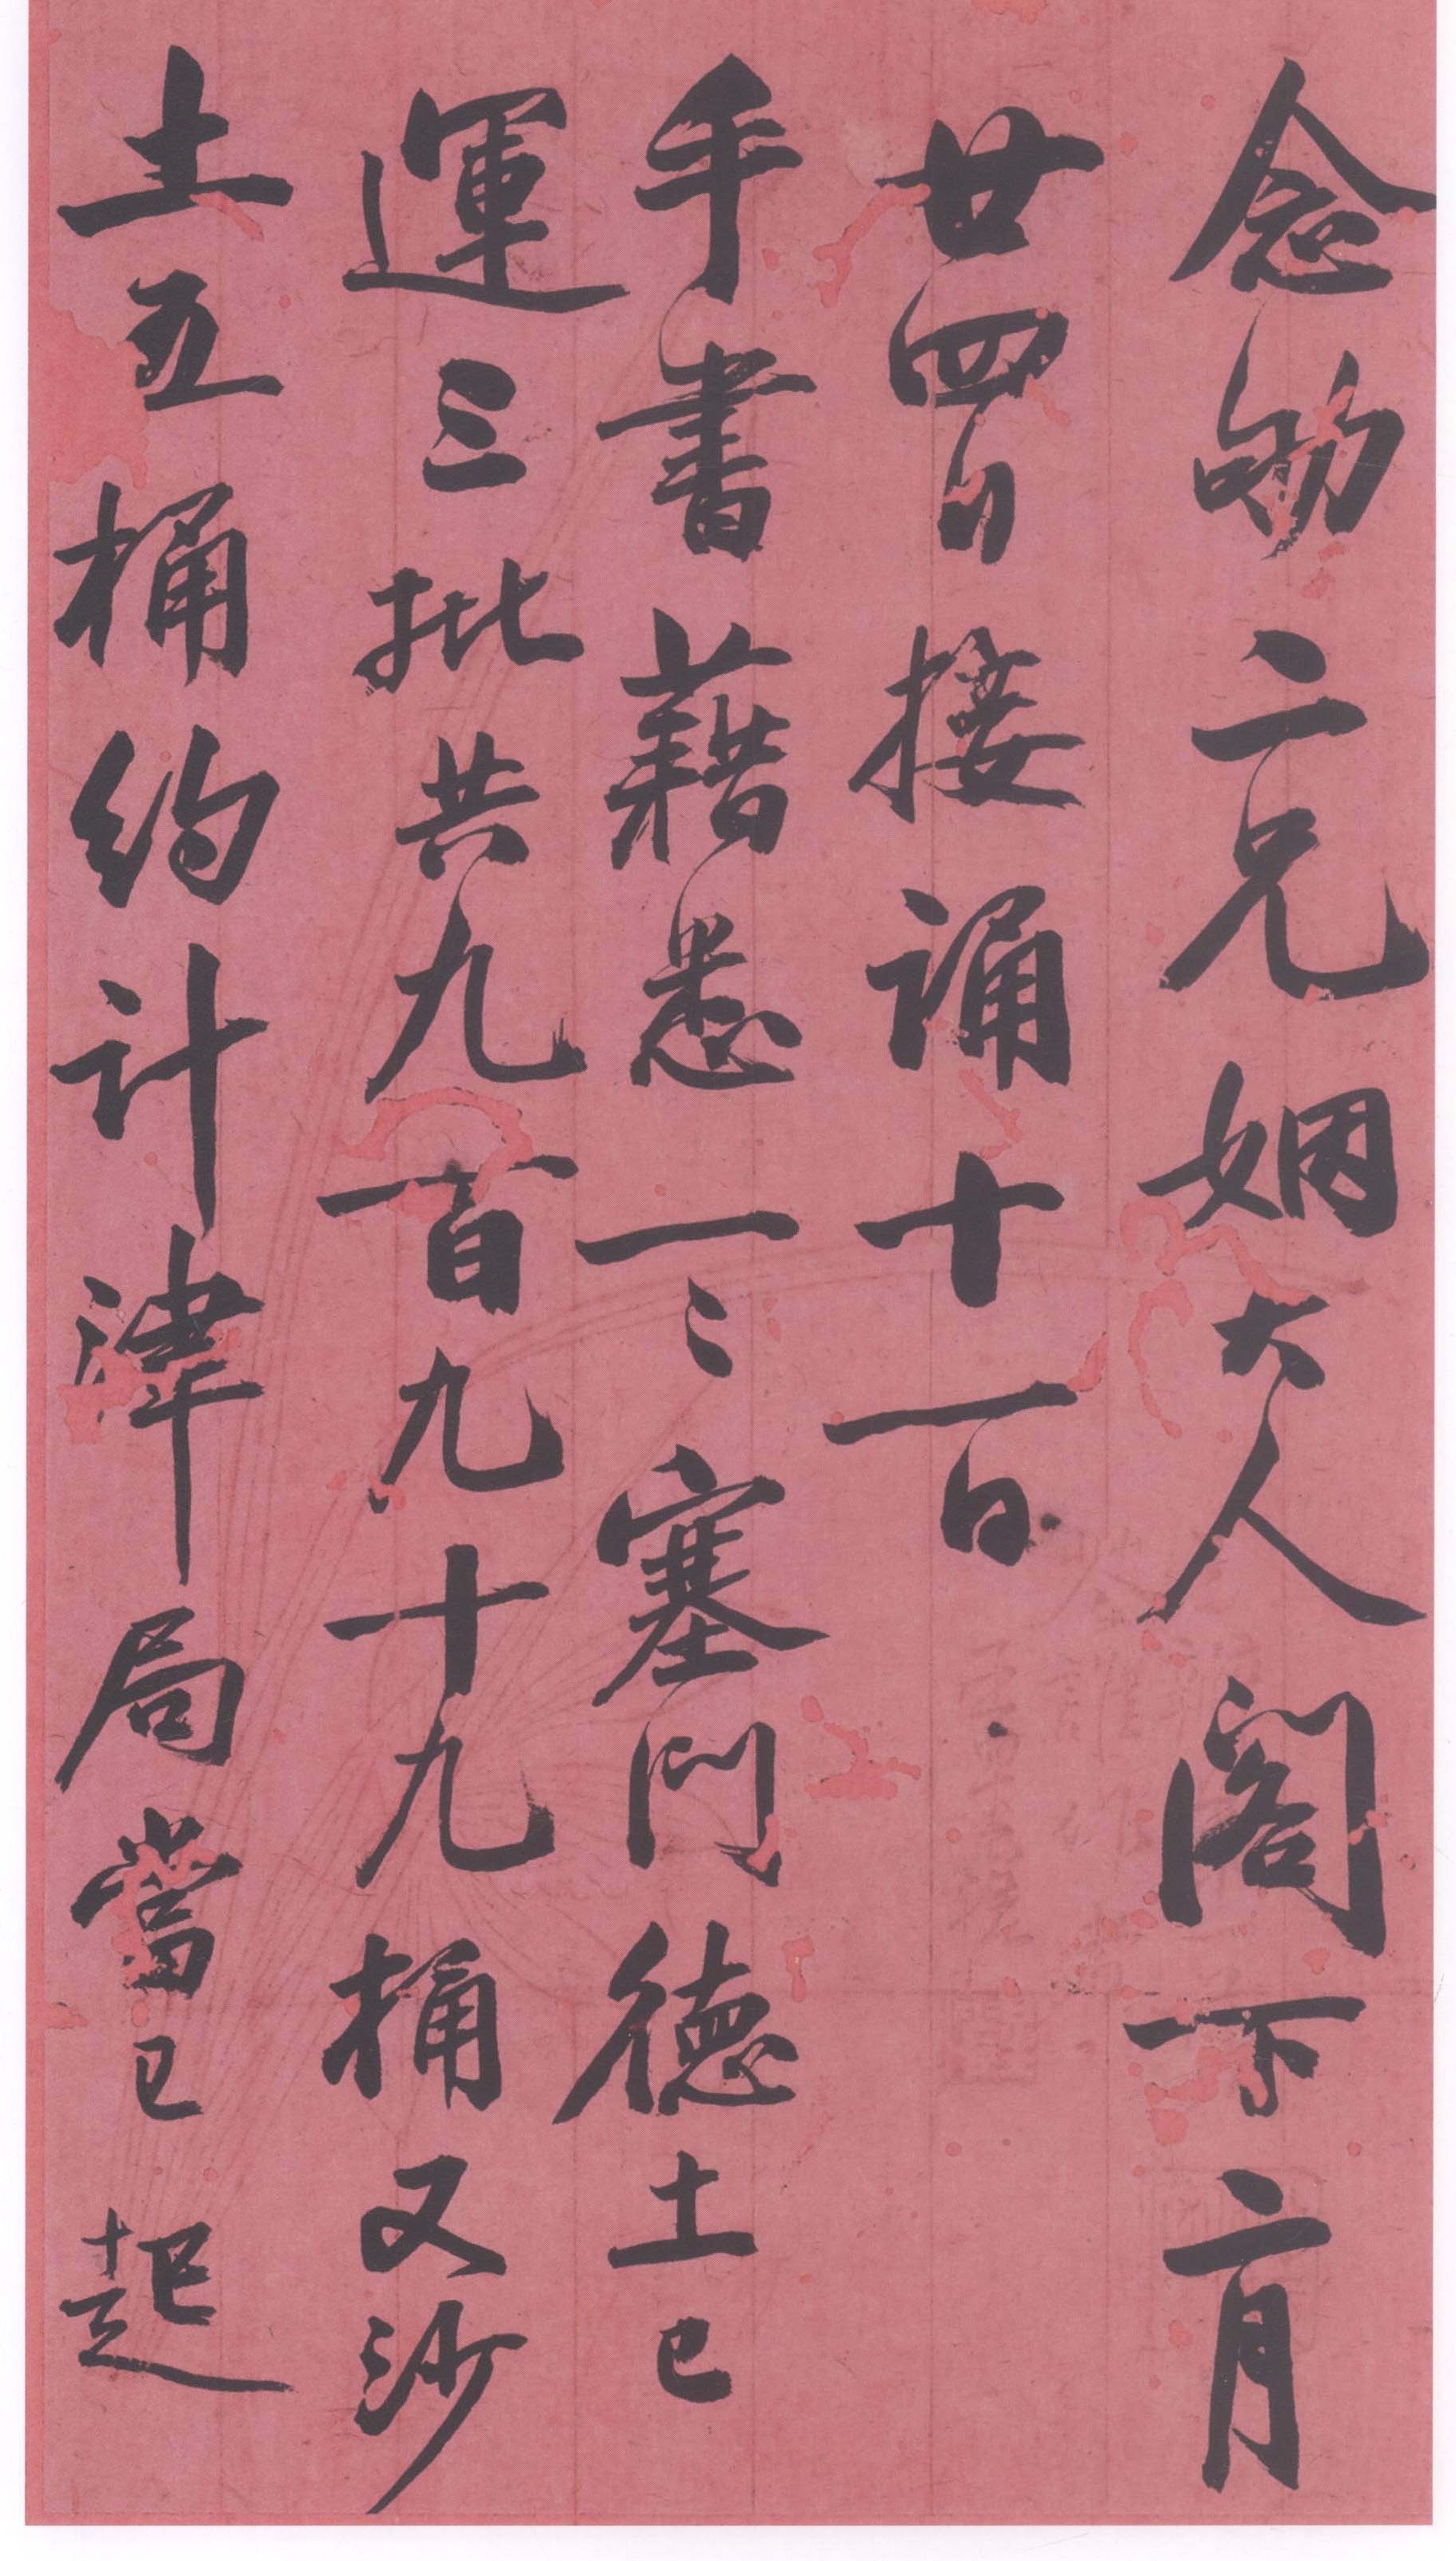 念劬二兄姻大人閣下二月
廿四日接誦十一日
手書藉悉一〻塞門德土已
運三批共九百九十九桶又沙
土五桶約計津局當已起